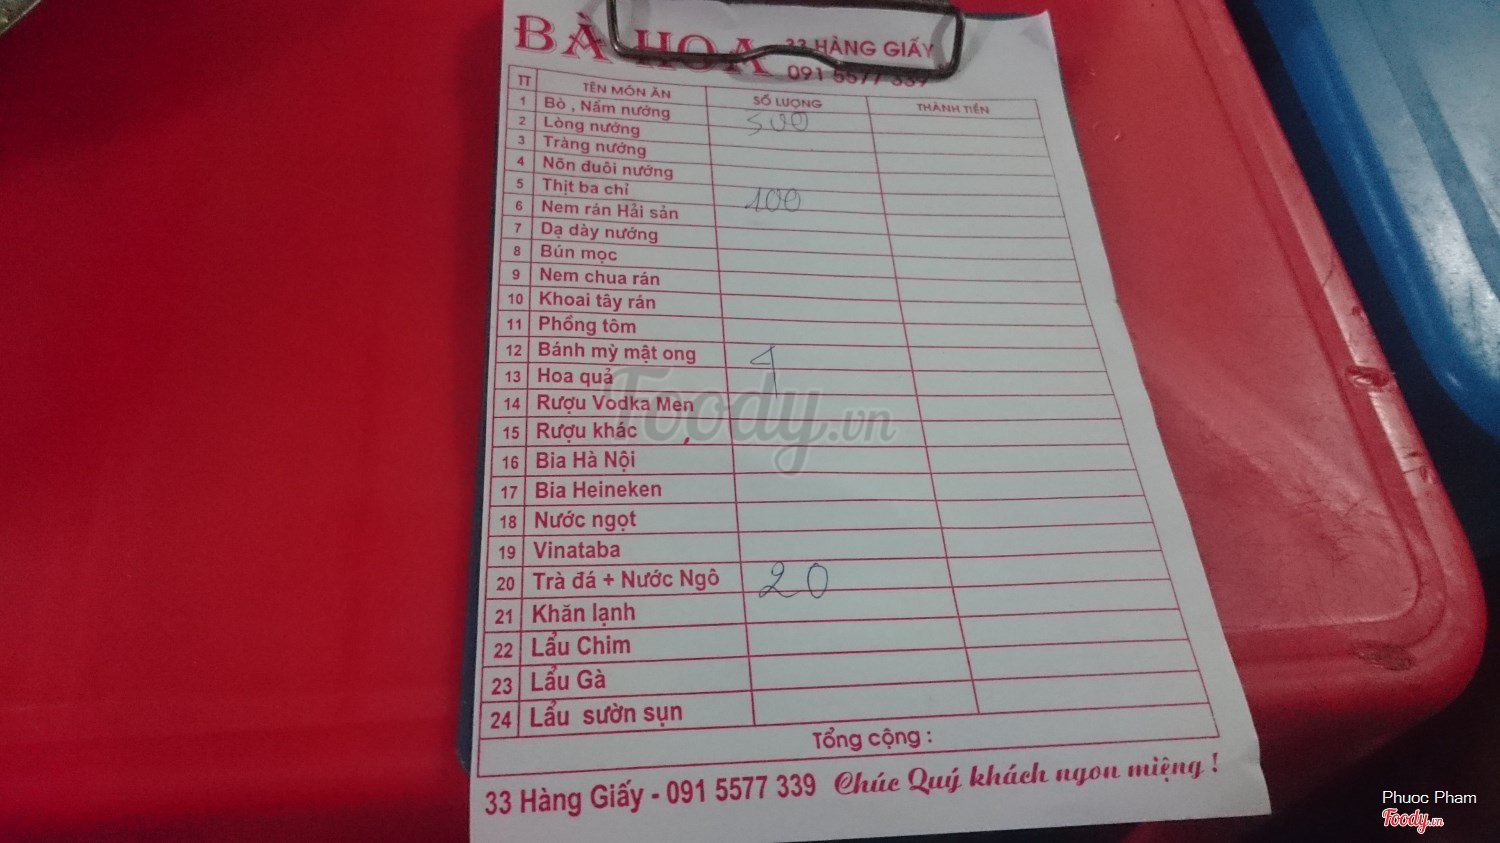 BÀ HOA 33 HÀNG GIẤY
091 5577 339
TT TÊN MÓN ĂN SỐ LƯỢNG THÀNH TIỀN
1 Bò , Nấm nướng 300
2 Lòng nướng
3 Tràng nướng
4 Nõn đuôi nướng
5 Thịt ba chỉ 100
6 Nem rán Hải sản
7 Dạ dày nướng
8 Bún mọc
9 Nem chua rán
10 Khoai tây rán
11 Phồng tôm
12 Bánh mỳ mật ong 4
13 Hoa quả
14 Rượu Vodka Men
15 Rượu khác
16 Bia Hà Nội
17 Bia Heineken
18 Nước ngọt
19 Vinataba
20 Trà đá + Nước Ngô 20
21 Khăn lạnh
22 Lẩu Chim
23 Lẩu Gà
24 Lẩu sườn sụn
Tổng cộng :
33 Hàng Giấy - 091 5577 339 Chúc Quý khách ngon miệng !
Foody.vn
Phuoc Pham
Foody.vn